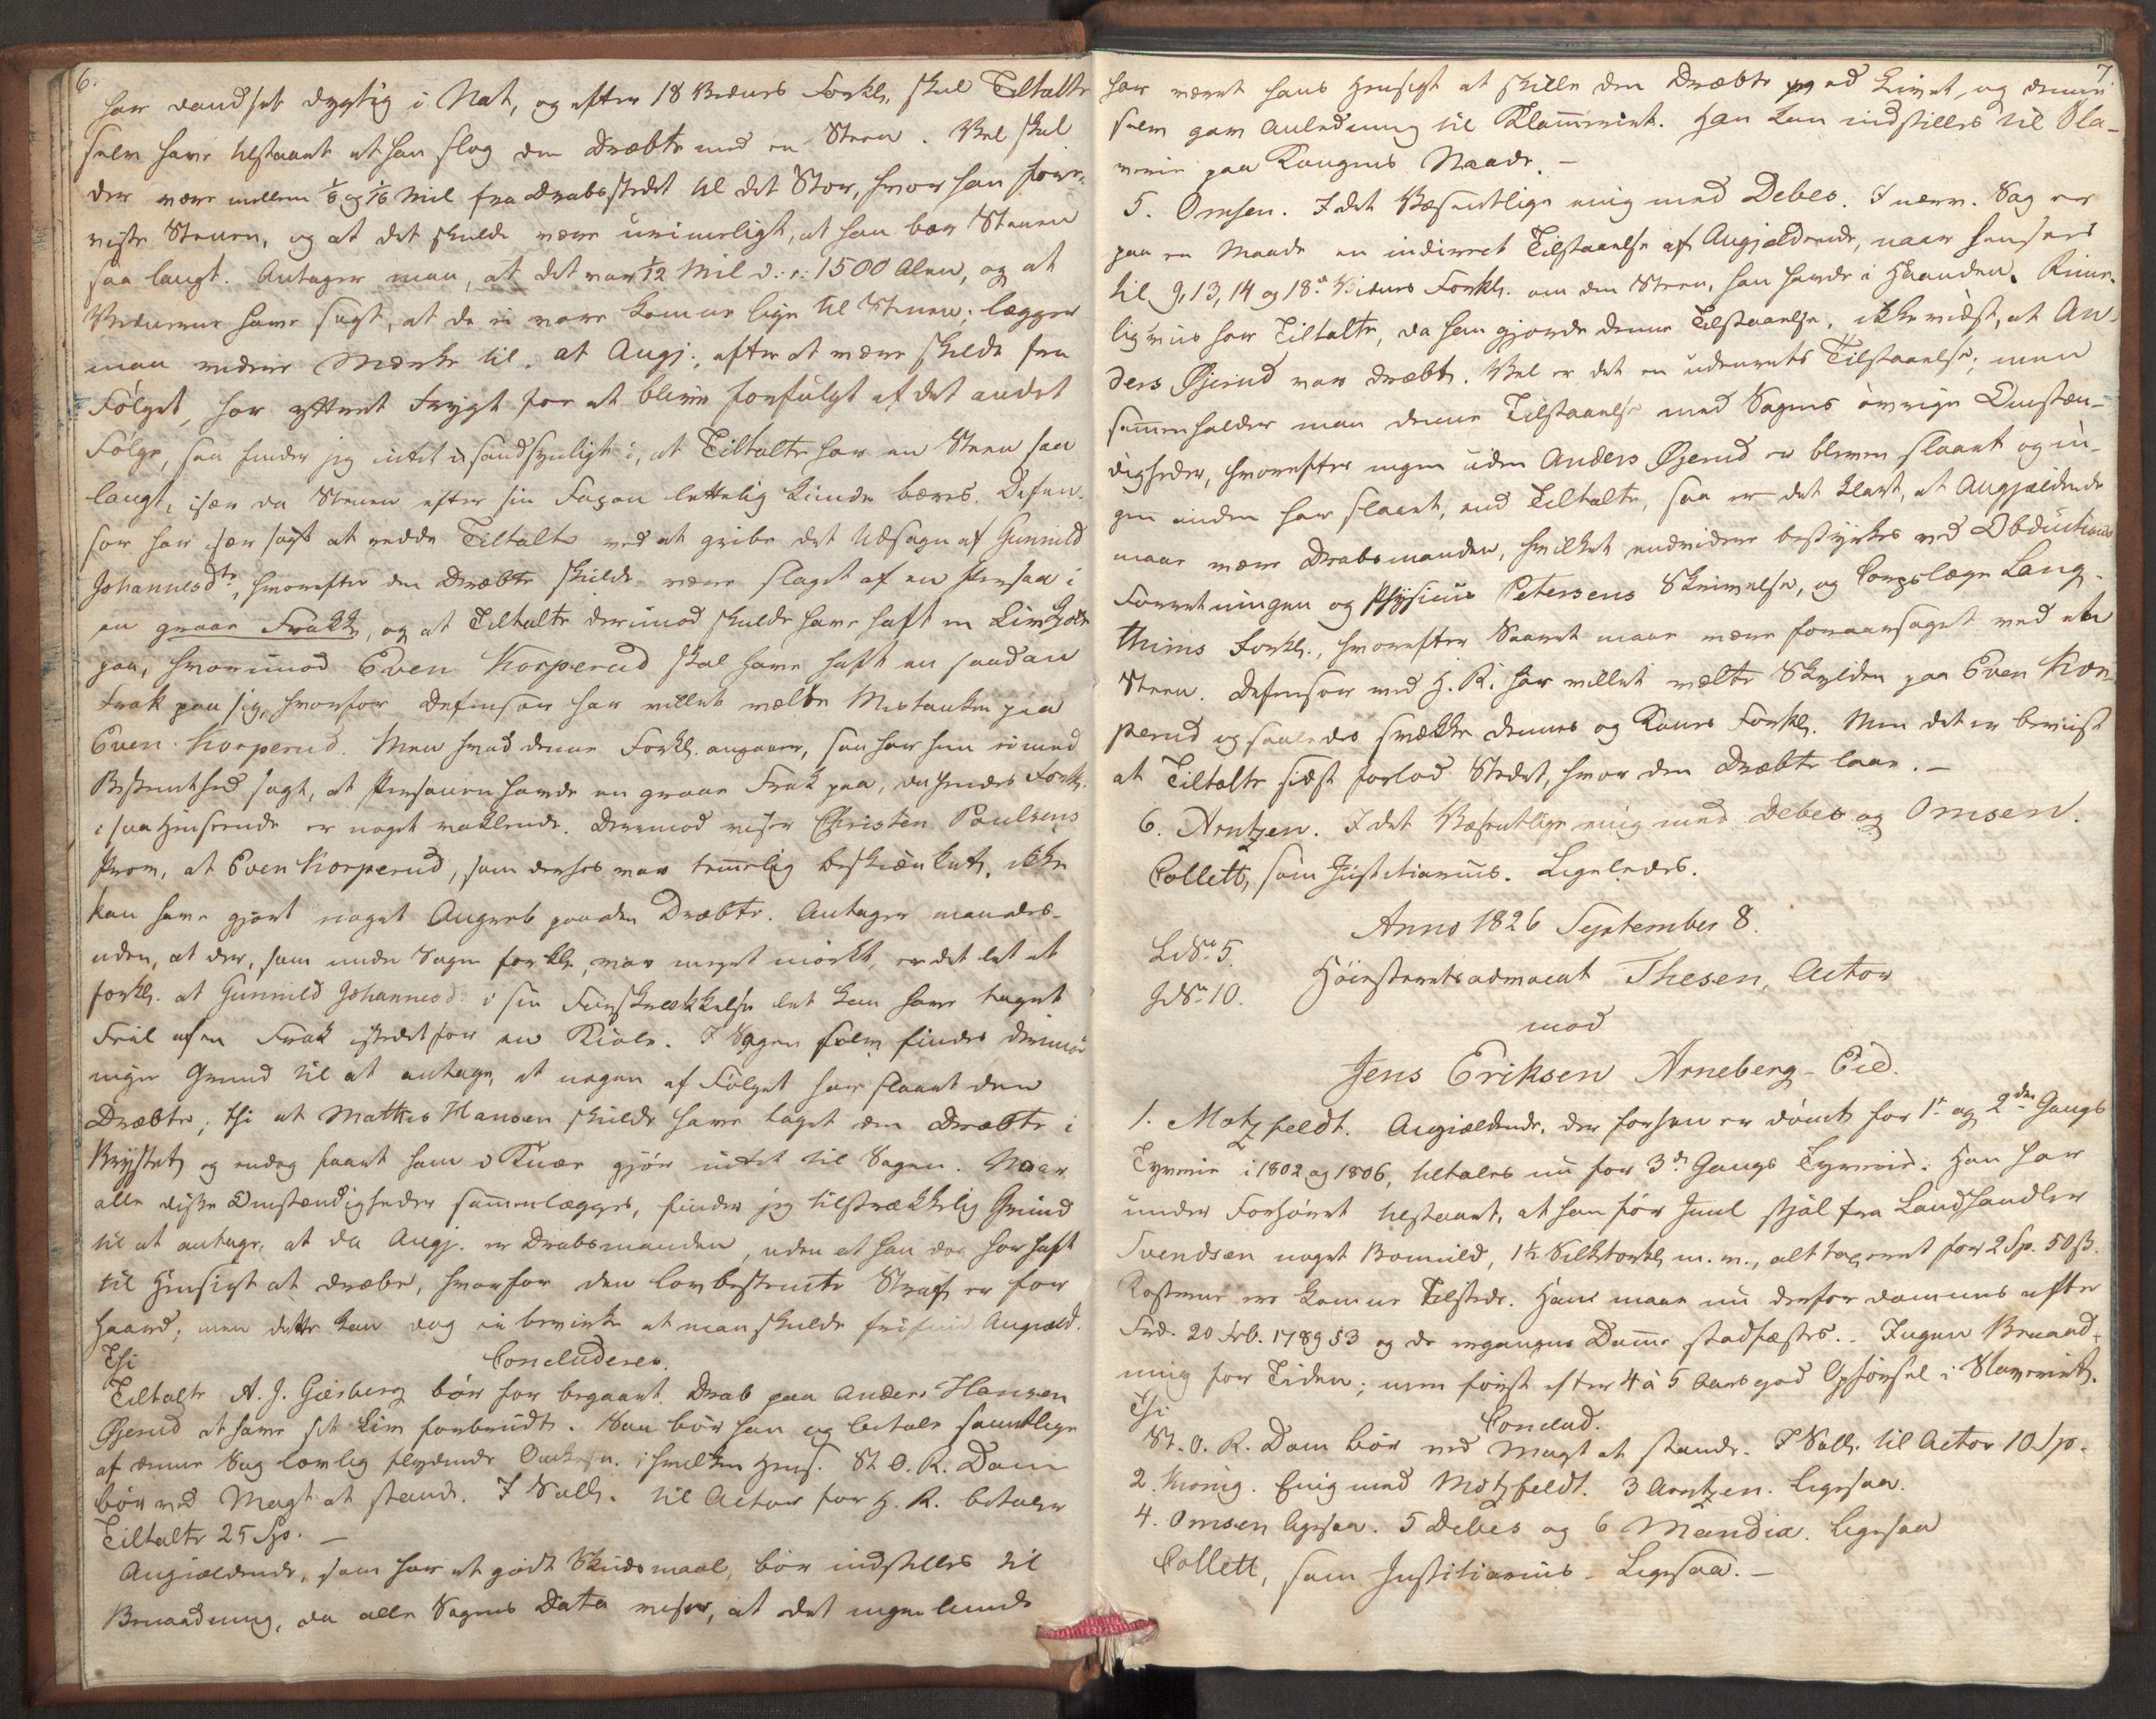 6.
har vandset dygtig i Nat, og efter 18 Vidnes Forkl. skal Tiltalte
selv have tilstaaet at han slog den Dræbte med en Steen. Vel skal
der være mellem 1/8 og 1/16 Mil fra Drabsstedet til det Stor, hvor han fore-
viiste Stenen, og at det skulde være urimeligt, at han bar Stenen
saa langt. Antager man, at det var 1/12 Mil d: e: 1500 Alen, og at
Vidnerne have sagt, at de ei vare komne lige til Stenen; lægger
man videre Mærke til, at Angj. efter at være skilt fra
Følget, har yttret Frygt for at blive forfulgt af det andet
Følge, saa finder jeg intet usandsynligt i, at Tiltalte har en Steen saa
langt, især da Stenen efter sin Façon lettelig kunde bæres. Defen-
sor har især søgt at redde Tiltalte ved at gribe det Udsagn af Gunnild
Johannesdtr, hvorefter den Dræbte skulde være slaget af en Person i
en graae Frakke, og at Tiltalte derimod skulde have haft en Livkjole
paa, hvorimod Even Korperud skal have haft en saadan
Frak paa sig, hvorfor Defensor har villet vælte Mistanken paa
Even Korperud. Men hvad denne Forkl. angaaer, saa har hun ei med
Bestemthed sagt, at Personen havde en graae Frak paa, da hendes Forkl.
i saa Henseende er noget vaklende. Derimod viser Christen Paulsens
Prov, at Even Korperud, som desuden var temmelig beskiænket, ikke
kan have gjort noget Angreb paa den Dræbte. Antager man des-
uden, at der, som under Sagen forkl., var meget mørkt, er det let at
forkl. at Gunnild Johannesd. i sin Forskrækkelse let kan have taget
Feil af en Frak istedetfor en Kiole. I Sagen selv findes derimod
ingen Grund til at antage, at nogen af Følget har slaaet den
Dræbte; thi at Mathis Hansen skulde have taget den Dræbte i
Brystet og endog faaet ham i Knæe gjør intet til Sagen. Naar
alle disse Omstændigheder sammenlægges, finder jeg tilstrækkelig Grund
til at antage, at da Angj. er Drabsmanden, uden at han dog har haft
til Hensigt at dræbe, hvorfor den lovbestemte Straf er for
haard; men dette kan dog ei bevirke at man skulde frifinde Angiæld.
Thi Concluderes.
Tiltalte A. J. Giesberg bør for begaaet Drab paa Anders Hansen
Øjerud at have sit Liv forbrudt. Saa bør han og betale samtlige
af denne Sag lovlig flydende Omkostn. i hvilken Hens. St. O. R. Dom
bør ved Magt at stande. I Sall. til Actor for H. R. betaler
Tiltalte 25 Sp. –
Angiældende, som har et godt Skudsmaal, bør indstilles til
Benaadning, da alle Sagens Data viser, at det ingenlunde
7.
har været hans Hensigt at skille den Dræbte ved Livet, og denne
selv gav Anledning til Klammeriet. Han kan indstilles til Sla-
verie paa Kongens Naade. –
5. Omsen. I det Væsentlige enig med Debes. I nærv. Sag er
paa en Maade en indirect Tilstaaelse af Angjældende, naar henses
til 9, 13, 14 og 18de Vidnes Forkl. om den Steen, han havde i Haanden. Rime-
ligviis har Tiltalte, da han gjorde denne Tilstaaelse, ikke vidst, at An-
ders Øjerud var dræbt. Vel er det en udenrets Tilstaaelse; men
sammenholder man denne Tilstaaelse med Sagens øvrige Omstæn-
digheder, hvorefter ingen uden Anders Øjerud er bleven slaaet og in-
gen anden har slaaet, end Tiltalte, saa er det klart, at Angjældende
maae være Drabsmanden, hvilket endvidere bestyrkes ved Obductions
Forretningen og Physicus Petersens Skrivelse, og Corpslæge Lang-
thims Forkl., hvorefter Saaret maae være foraarsaget ved en
Steen. Defensor ved H. R. har villet vælte Skylden paa Even Kor-
perud og saaledes svække dennes og Kones Forkl. Men det er beviist
at Tiltalte sidst forlod Stedet, hvor den Dræbte laae. –
6. Arntzen. I det Væsentlige enig med Debes og Omsen.
Collett, som Justitiarius. Ligeledes.
Anno 1826 September 8.
L. No. 5.
J. No. 10.
Høiesteretsadvocat Thesen, Actor
mod
Jens Eriksen Arneberg-Eie.
1. Motzfeldt. Angiældende, der forhen er dømt for 1ste og 2den Gangs
Tyverie i 1802 og 1806, tiltales nu for 3die Gangs Tyverie. Han har
under Forhøret tilstaaet, at han før Juul stjal fra Landhandler
Svendsen noget Bomuld, 1½ Silketørkl. m. v., alt taxeret for 2 Sp. 50 ß.
Kosterne ere komne tilstede. Han maae nu derfor dømmes efter
Frd. 20 Feb. 1789 § 3 og de ergangne Domme stadfæstes. Ingen Benaad-
ning for Tiden; men først efter 4 à 5 Aars god Opførsel i Slaveriet.
Thi Conclud.
St. O. R. Dom bør ved Magt at stande. I Sall. til Actor 10 Sp.
2. Kronig. Enig med Motzfeldt. 3 Arntzen. Ligesaa.
4. Omsen ligesaa. 5 Debes og 6 Mandix. Ligesaa
Collett, som Justitiarius – Ligesaa. –